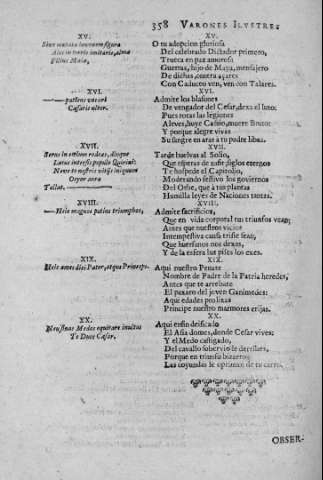 358 VARONES ILVSTRES
XV.
Sive mutata iuvenem figura
Ales in terris imitaris, almæ
Filius Maiæ,
XVI.
patiens vocari
Cæsaris ultor.
XVII.
Serus in cœlum redeas, diuque
Lætus intersis populo Quirini:
Neve te nostris vitijs iniquum
Ocyor aura
Tollat.
XVIII.
Hic magnos potius triumphos,
XIX.
Hic ames dici Pater, atque Princeps.
XX.
Neu sinas Medos equitare inultos
Te Duce Cæsar.
XV.
O tu adopcion gloriosa
Del celebrado Dictador primero,
Trueca en paz amorosa
Guerras, hijo de Maya, mensajero
De dichas, contra açares
Con Caduceo ven, ven con Talares.
XVI.
Admite los blasones
De vengador del Cesar, dexa el luto:
Pues rotas las legiones
Aleves, huye Casio, muere Bruto:
Y porque alegre vivas
Su sangre en aras à tu padre libas.
XVII.
Tarde huelvas al Solio,
Que esperas de siglos eternos
Te hospede el Capitolio,
Moderando festivo los goviernos
Del Orbe, que à tus plantas
Humilla leyes de Naciones tantas.
XVIII.
Admite sacrificios,
Que en vida corporal tus triunfos vean;
Antes que nuestros vicios
Intempestiva causa triste sean,
Que huerfanos nos dexas,
Y de la esfera las pises los exes.
XIX.
Aqui nuestro Penate
Nombre de Padre de la Patria heredes,
Antes que te arrebate
El paxaro del joven Ganimedes:
Aqui edades prolixas
Principe nuestro marmores erijas.
XX.
Aqui estàs deificado
El Asia domes, donde Cesar vives:
Y el Medo castigado,
Del cavallo sobervio le derribes,
Porque en triunfo bizarro
Las coyundas le opriman de tu carro.
OBSER-